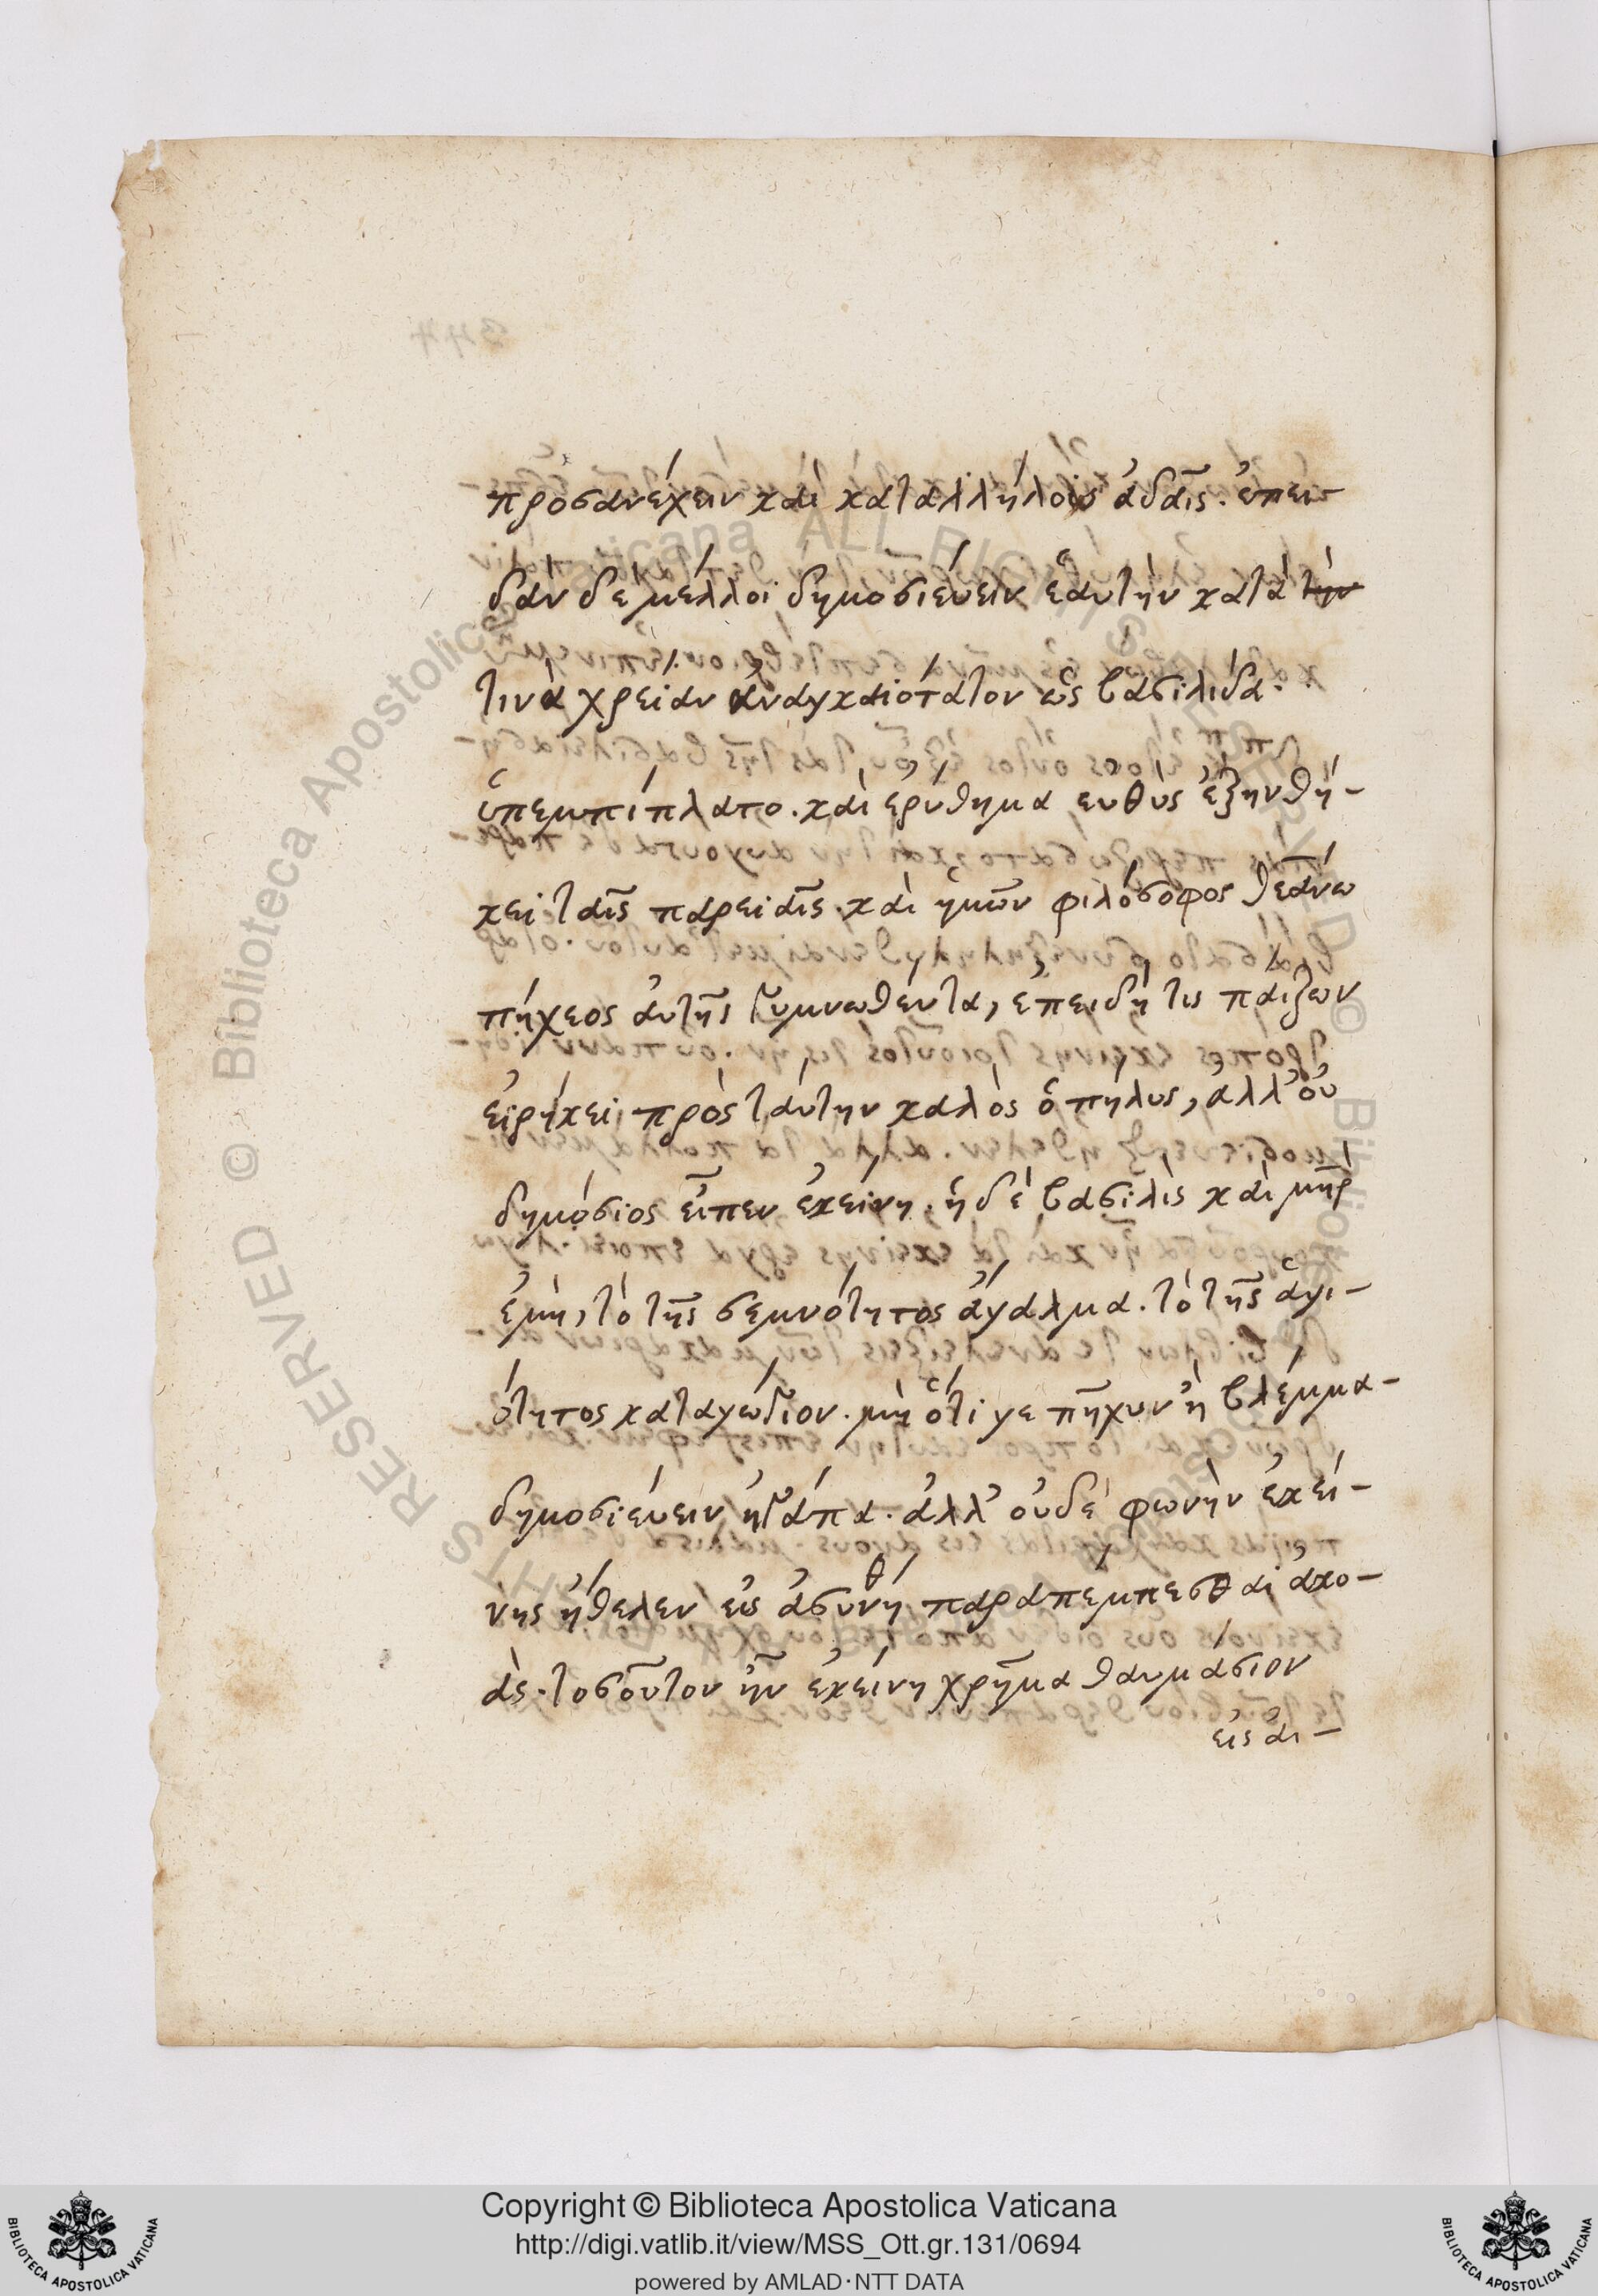 προσανέχειν καὶ καταλλήλοις ἀδαῖς. ἐπει-
δὰν δὲ μέλλοι δημοσιεύειν ἑαυτὴν κατὰ τὴν
τινὰ χρείαν ἀναγκαιοτάτον ὡς βασιλίδα.
ὑπεμπίπλατο. καὶ ἐρύθημα ευθὺς ἐξηνθή-
κει ταῖς παρειαῖς. καὶ ἡμῶν φιλόσοφος θεάνω
πήχεος ἀυτῆς γυμνωθέντα, ἐπειδή τις παίζων
εἰρήκει πρὸς τάυτην καλὸς ὁ πήλυς, ἀλλ' οὐ
δημόσιος εἶπεν ἐκείνη. ἡ δὲ βασιλὶς καὶ μηρ
ἐμὴ, τὸ τῆς σεμνότητος ἄγαλμα. τὸ τῆς ἁγι-
ότητος καταγώγιον. μὴ ὅτι γε πῆχυν ἢ βλέμμα-
δημοσιεύειν ἠγάπα. ἀλλ' ουδὲ φωνὴν ἐκεί-
νης ἤθελεν εἰς ἀσυνήθη παραπέμπεσθαι ἀκο-
ὰς. τοσοῦτον ἦν ἐκείνη χρῆμα θαυμάσιον
εἰς ἀι-
Copyright © Biblioteca Apostolica Vaticana
http://digi.vatlib.it/view/MSS_Ott.gr.131/0694
powered by AMLAD·NTT DATA
BIBLIOTECA APOSTOLICA VATICANA
BIBLIOTECA APOSTOLICA VATICANA